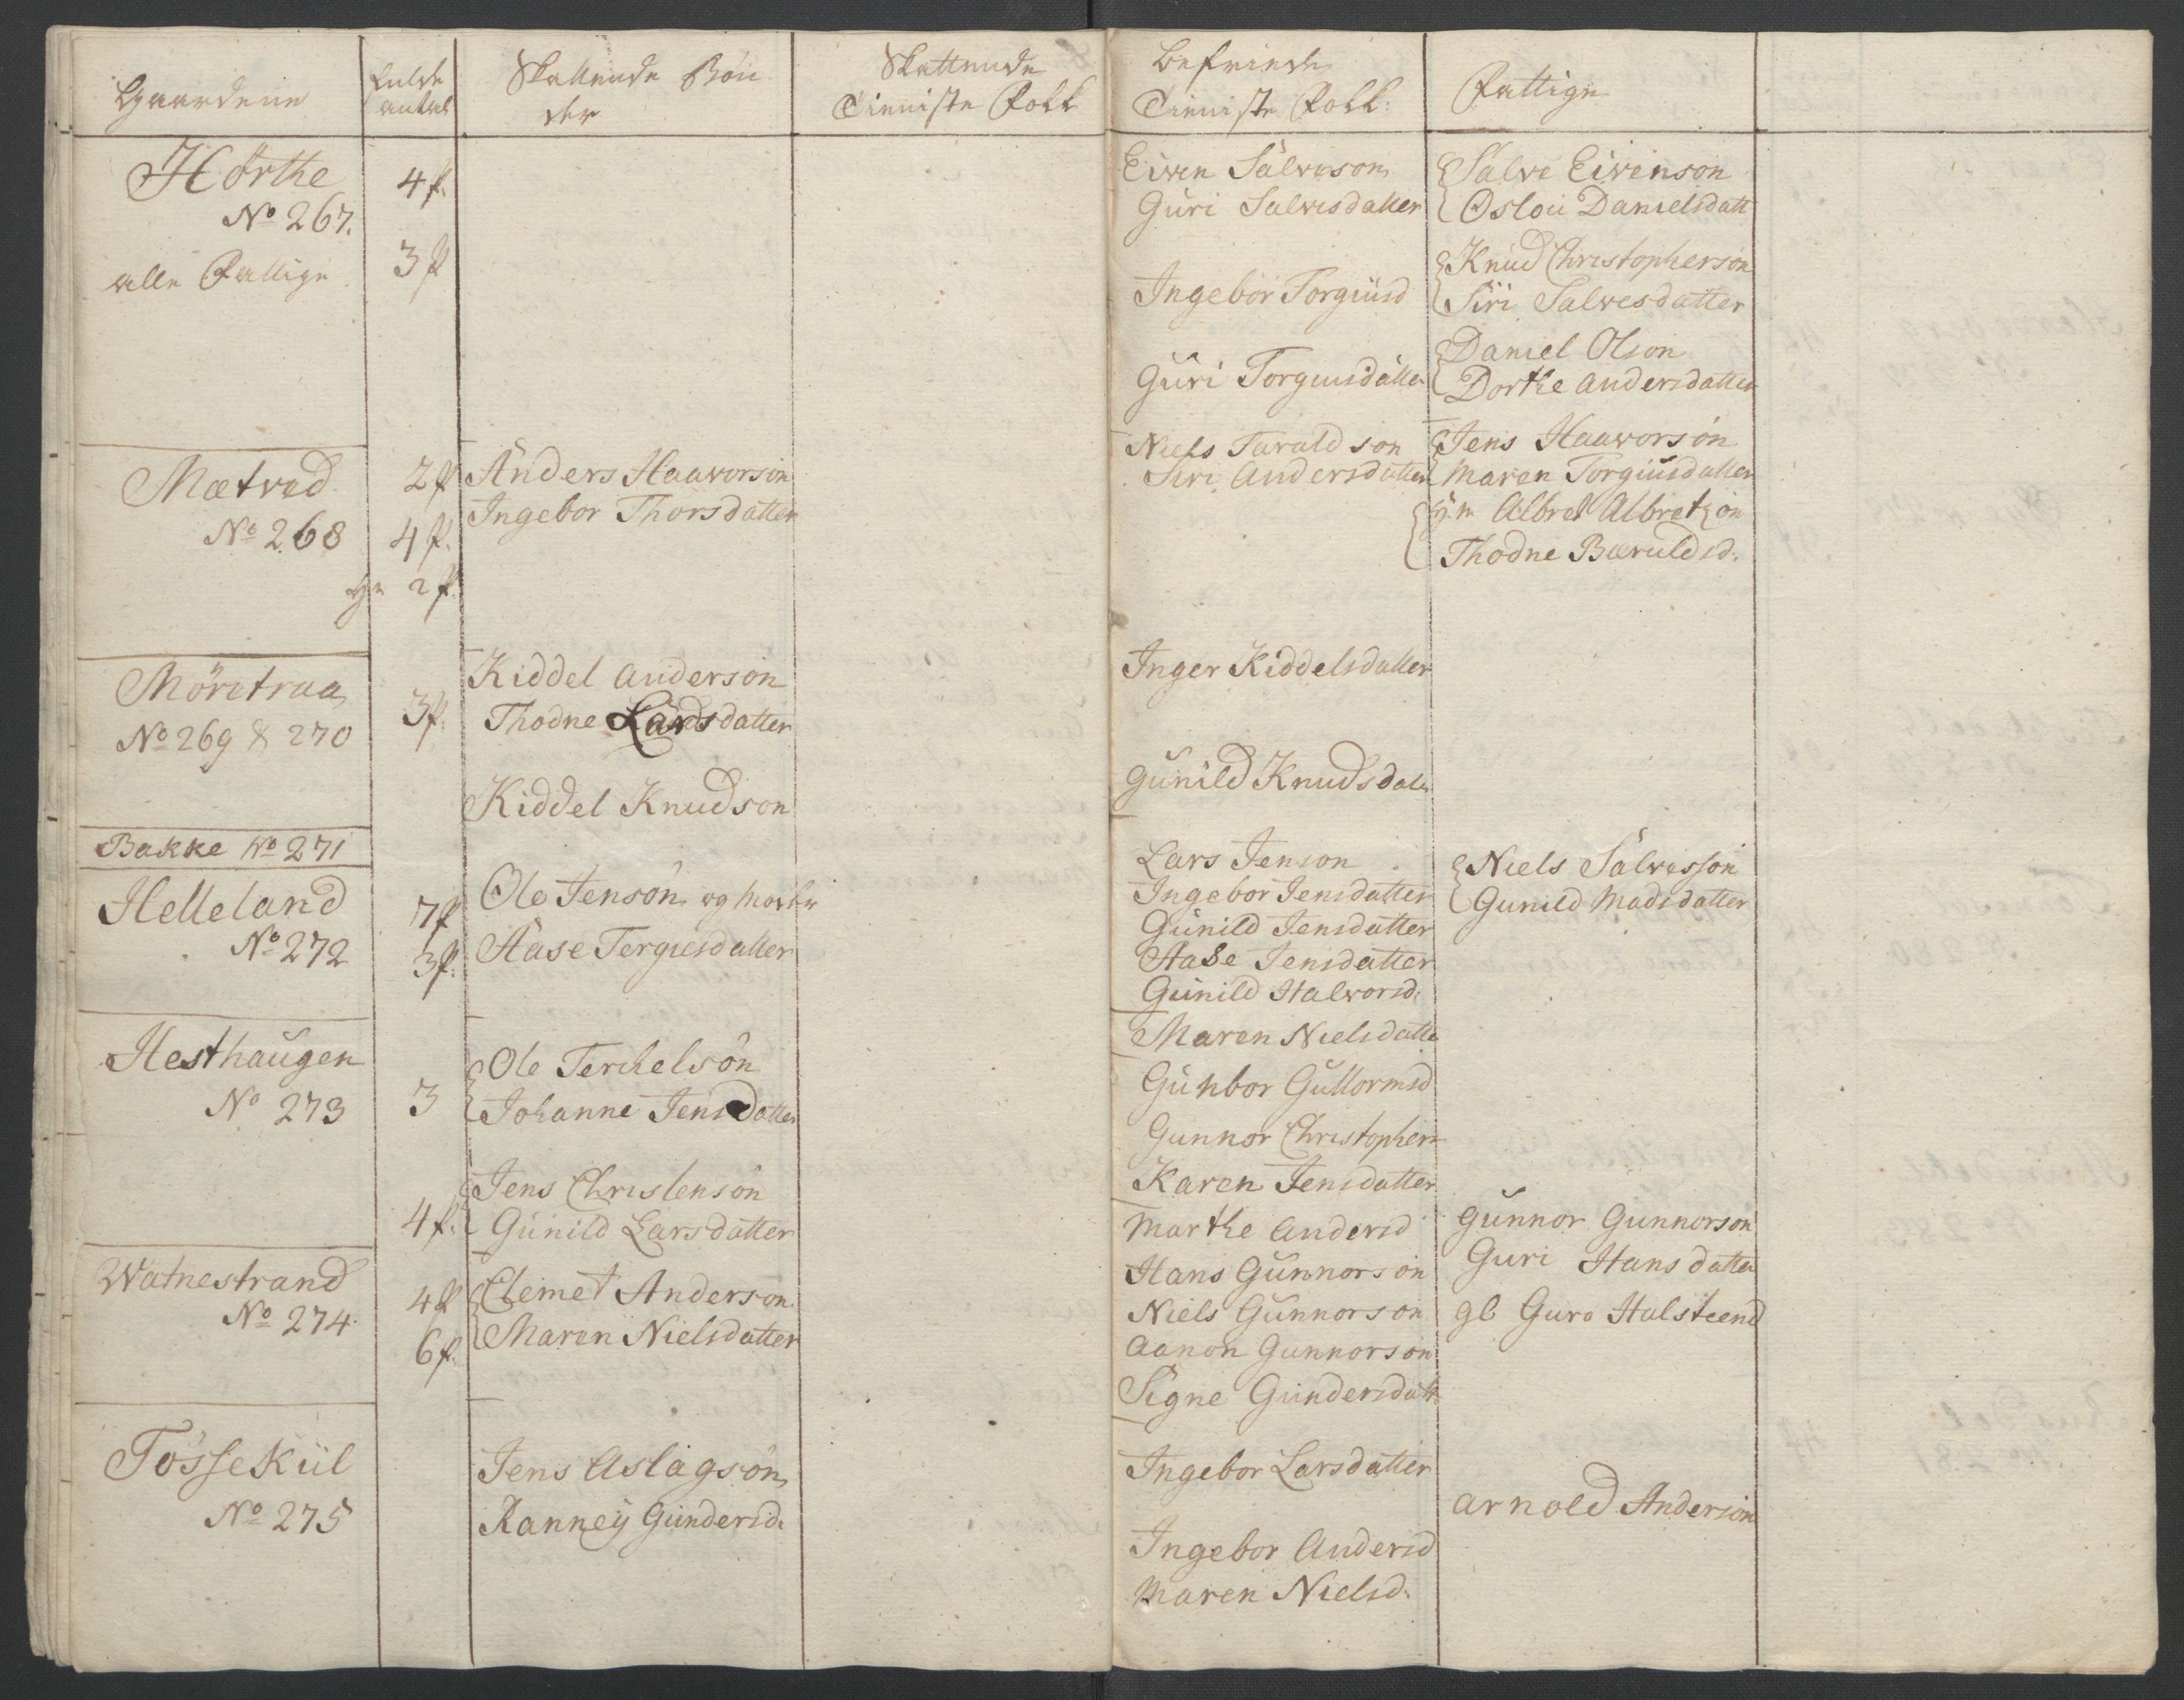 Gaardene
fulde antal
Skattende Bön
der
Skattende
Tieniste Folk
befriede
Tieniste Folk:
Fattige
Hörthe
No 267.
alle Fattige
4 f.
3 f
Eiven Salveson
Guri Salvesdatter
Ingebor Torgiusd
Guri Torgiusdatter
Salve Eivenson
Oslou Danielsdatt
Knud Christopherson
Siri Salvesdatter
Daniel Olson
Dorthe Andersdatter
Mætved
No 268
2 f
4 f.
2 f.
Anders Haavorson
Ingebor Thorsdatter
Niels Taraldson
Siri Andersdatter
Jens Haavorson
Maren Torgiusdatter
Albret Albretson
Thodne Bæruldsd.
Möretraa
No 269 & 270
3 f.
Kiddel Anderson
Thodne Larsdatter
Kiddel Knudson
Inger Kiddelsdatter
Gunild Knudsdatr
Bakke No 271
Helleland
No 272
7 f
3 f.
Ole Jenson og
Aase Tergiusdatter
Lars Jenson
Ingebor Jensdatter
Gunild Jensdatter
Aase Jensdatter
Gunild Halvorsd.
Niels Salvesson
Gunild Madsdatter
Hesthaugen
No 273
3
4 f.
Ole Terchelsön
Johanne Jensdatter
Jens Christensön
Gunild Larsdatter
Maren Nielsdatte
Gunbor Gullormsd
Gunnor Christophers
Karen Jensdatter
Watnestrand
No 274
4 f
6 f.
Clemet Anderson
Maren Nielsdatter
Marthe Andersd
Hans Gunnorson
Niels Gunnorson
Aanon Gunnorson
Signe Gundersdatt
Gunnor Gunnorson
Guri Hansdatter
gl Guro Halsteend
Tösse Kiil
No 275
Jens Aslagsön
Ranney Gundersd.
Ingebor Larsdatter
Ingebor Andersd
Maren Nielsd.
Arnold Anderson